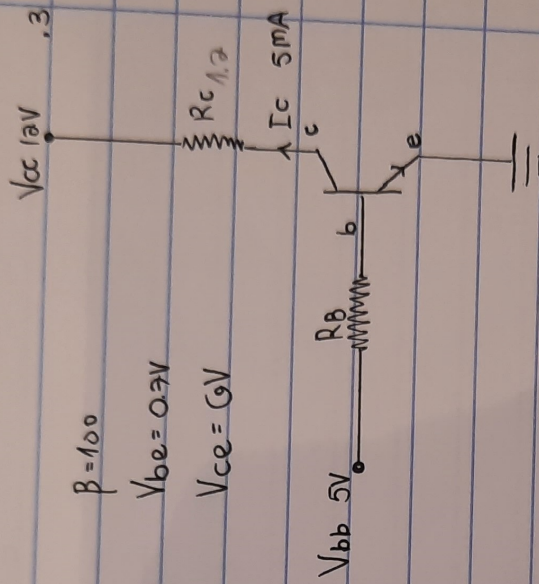 .3
Vcc 12V
Rc 1.2
Ic 5mA
c
β=100
Vbe=0.7V
Vce=6V
b
e
RB
Vbb 5V